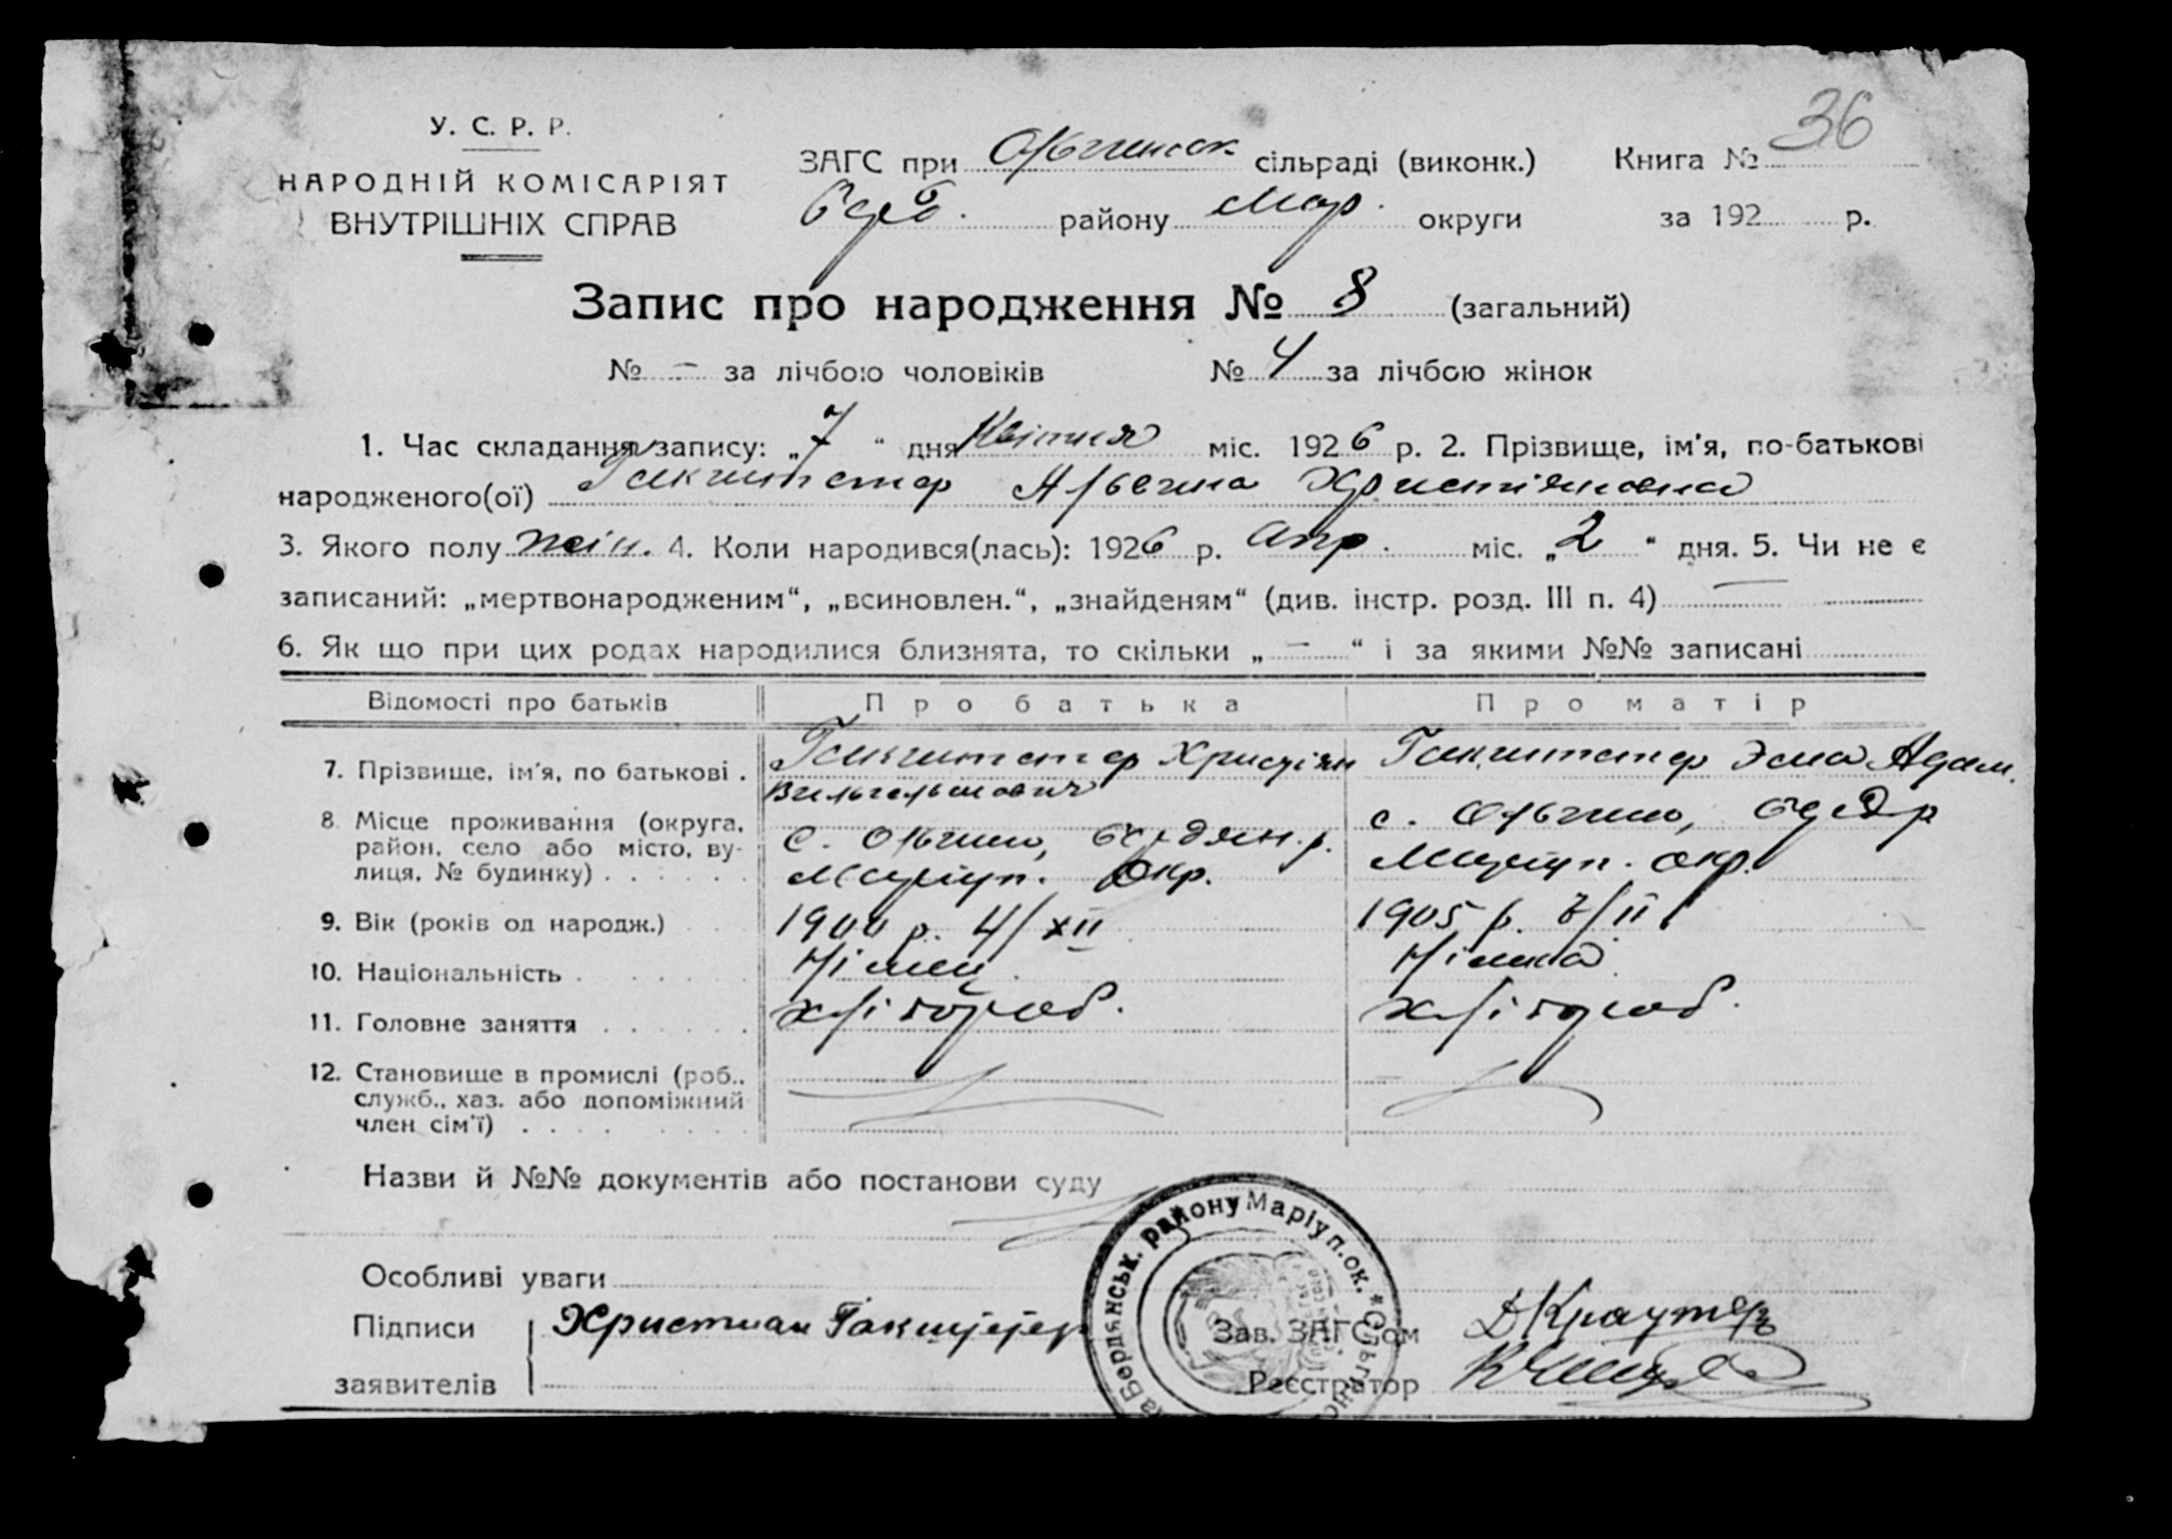 36
У. С. Р. Р.
НАРОДНІЙ КОМІСАРІЯТ
ВНУТРІШНІХ СПРАВ
ЗАГС при Ольгинск. сільраді (виконк.) Книга №
району Мар. округи за 192 р.
Запис про народження № 8 (загальний)
№ - за лічбою чоловіків № 4 за лічбою жінок
1. Час складання запису: „7“ дня Квітня міс. 1926 р. 2. Прізвище, ім'я, по-батькові
народженого(ої) Гакштетер Альвина Христіяновна
3. Якого полу жін. 4. Коли народився(лась): 1926 р. Апр. міс. „2“ дня. 5. Чи не є
записаний: „мертвонародженим“, „всиновлен.“, „знайденям“ (див. інстр. розд. III п. 4) —
6. Як що при цих родах народилися близнята, то скільки „ — “ і за якими №№ записані
Відомості про батьків Про батька Про матір
7. Прізвище, ім'я, по батькові . Гакштетер Христіян Вильгельмович Гакштетер Эма Адам.
8. Місце проживання (округа, район, село або місто, вулиця, № будинку) с. Ольгино, Бердян. р. Маріуп. Окр. с. Ольгино, Маріуп. окр.
9. Вік (років од народж.) 1900 р. 4/XII 1905 р.
10. Національність Німец. Німка
11. Головне заняття хлібороб. хлібороб.
12. Становище в промислі (роб.,
служб., хаз. або допоміжний
член сім'ї)
Назви й №№ документів або постанови суду
Особливі уваги
Підписи Христиан Гакштетер Зав. ЗАГС'ом Д Краутеръ
заявителів Реєстратор
Бердянськ. району Маріуп. ок. * Ольгинс